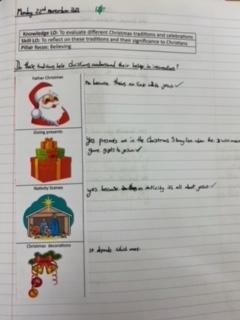 Monday 22nd November 2021
Knowledge LO: To evaluate different Christmas traditions and celebrations
Skill LO: To reflect on these traditions and their significance to Christians
Pillar focus: Believing
Do these traditions help Christians understand their belief in incarnation?
Father Christmas
no because theres no link with jesus
Giving presents
yes presents are in the Christmas Story
gave gifts to jesus
Nativity Scenes
yes because nativity it's all about jesus
Christmas decorations
it depends which ones.